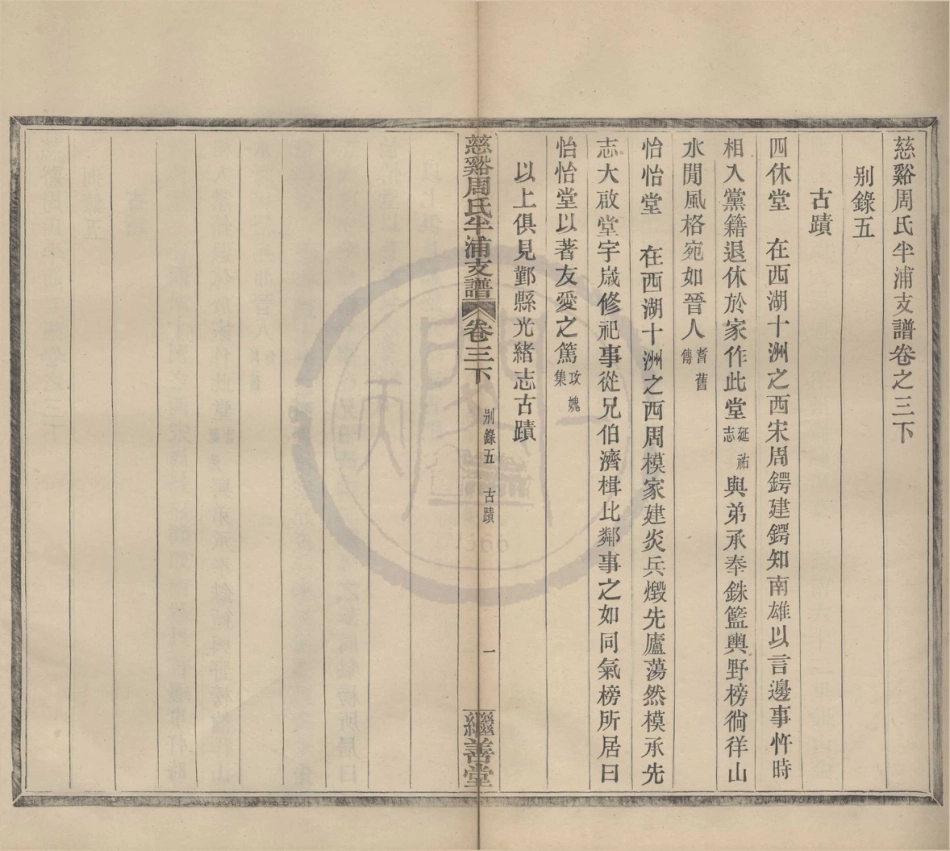 慈谿周氏半浦支譜卷之三下
别錄五
古蹟
四休堂 在西湖十洲之西宋周鍔建鍔知南雄以言邊事忤時
相入黨籍退休於家作此堂延祐志與弟承奉銖籃輿野榜徜徉山
水閒風格宛如晉人耆舊傳
怡怡堂 在西湖十洲之西周模家建炎兵燬先廬蕩然模承先
志大啟堂宇歲修祀事從兄伯濟楫比鄰事之如同氣榜所居曰
怡怡堂以著友愛之篤攻媿集
以上俱見鄞縣光緒志古蹟
慈谿周氏半浦支譜 卷三下 别錄五 古蹟 一 繼善堂